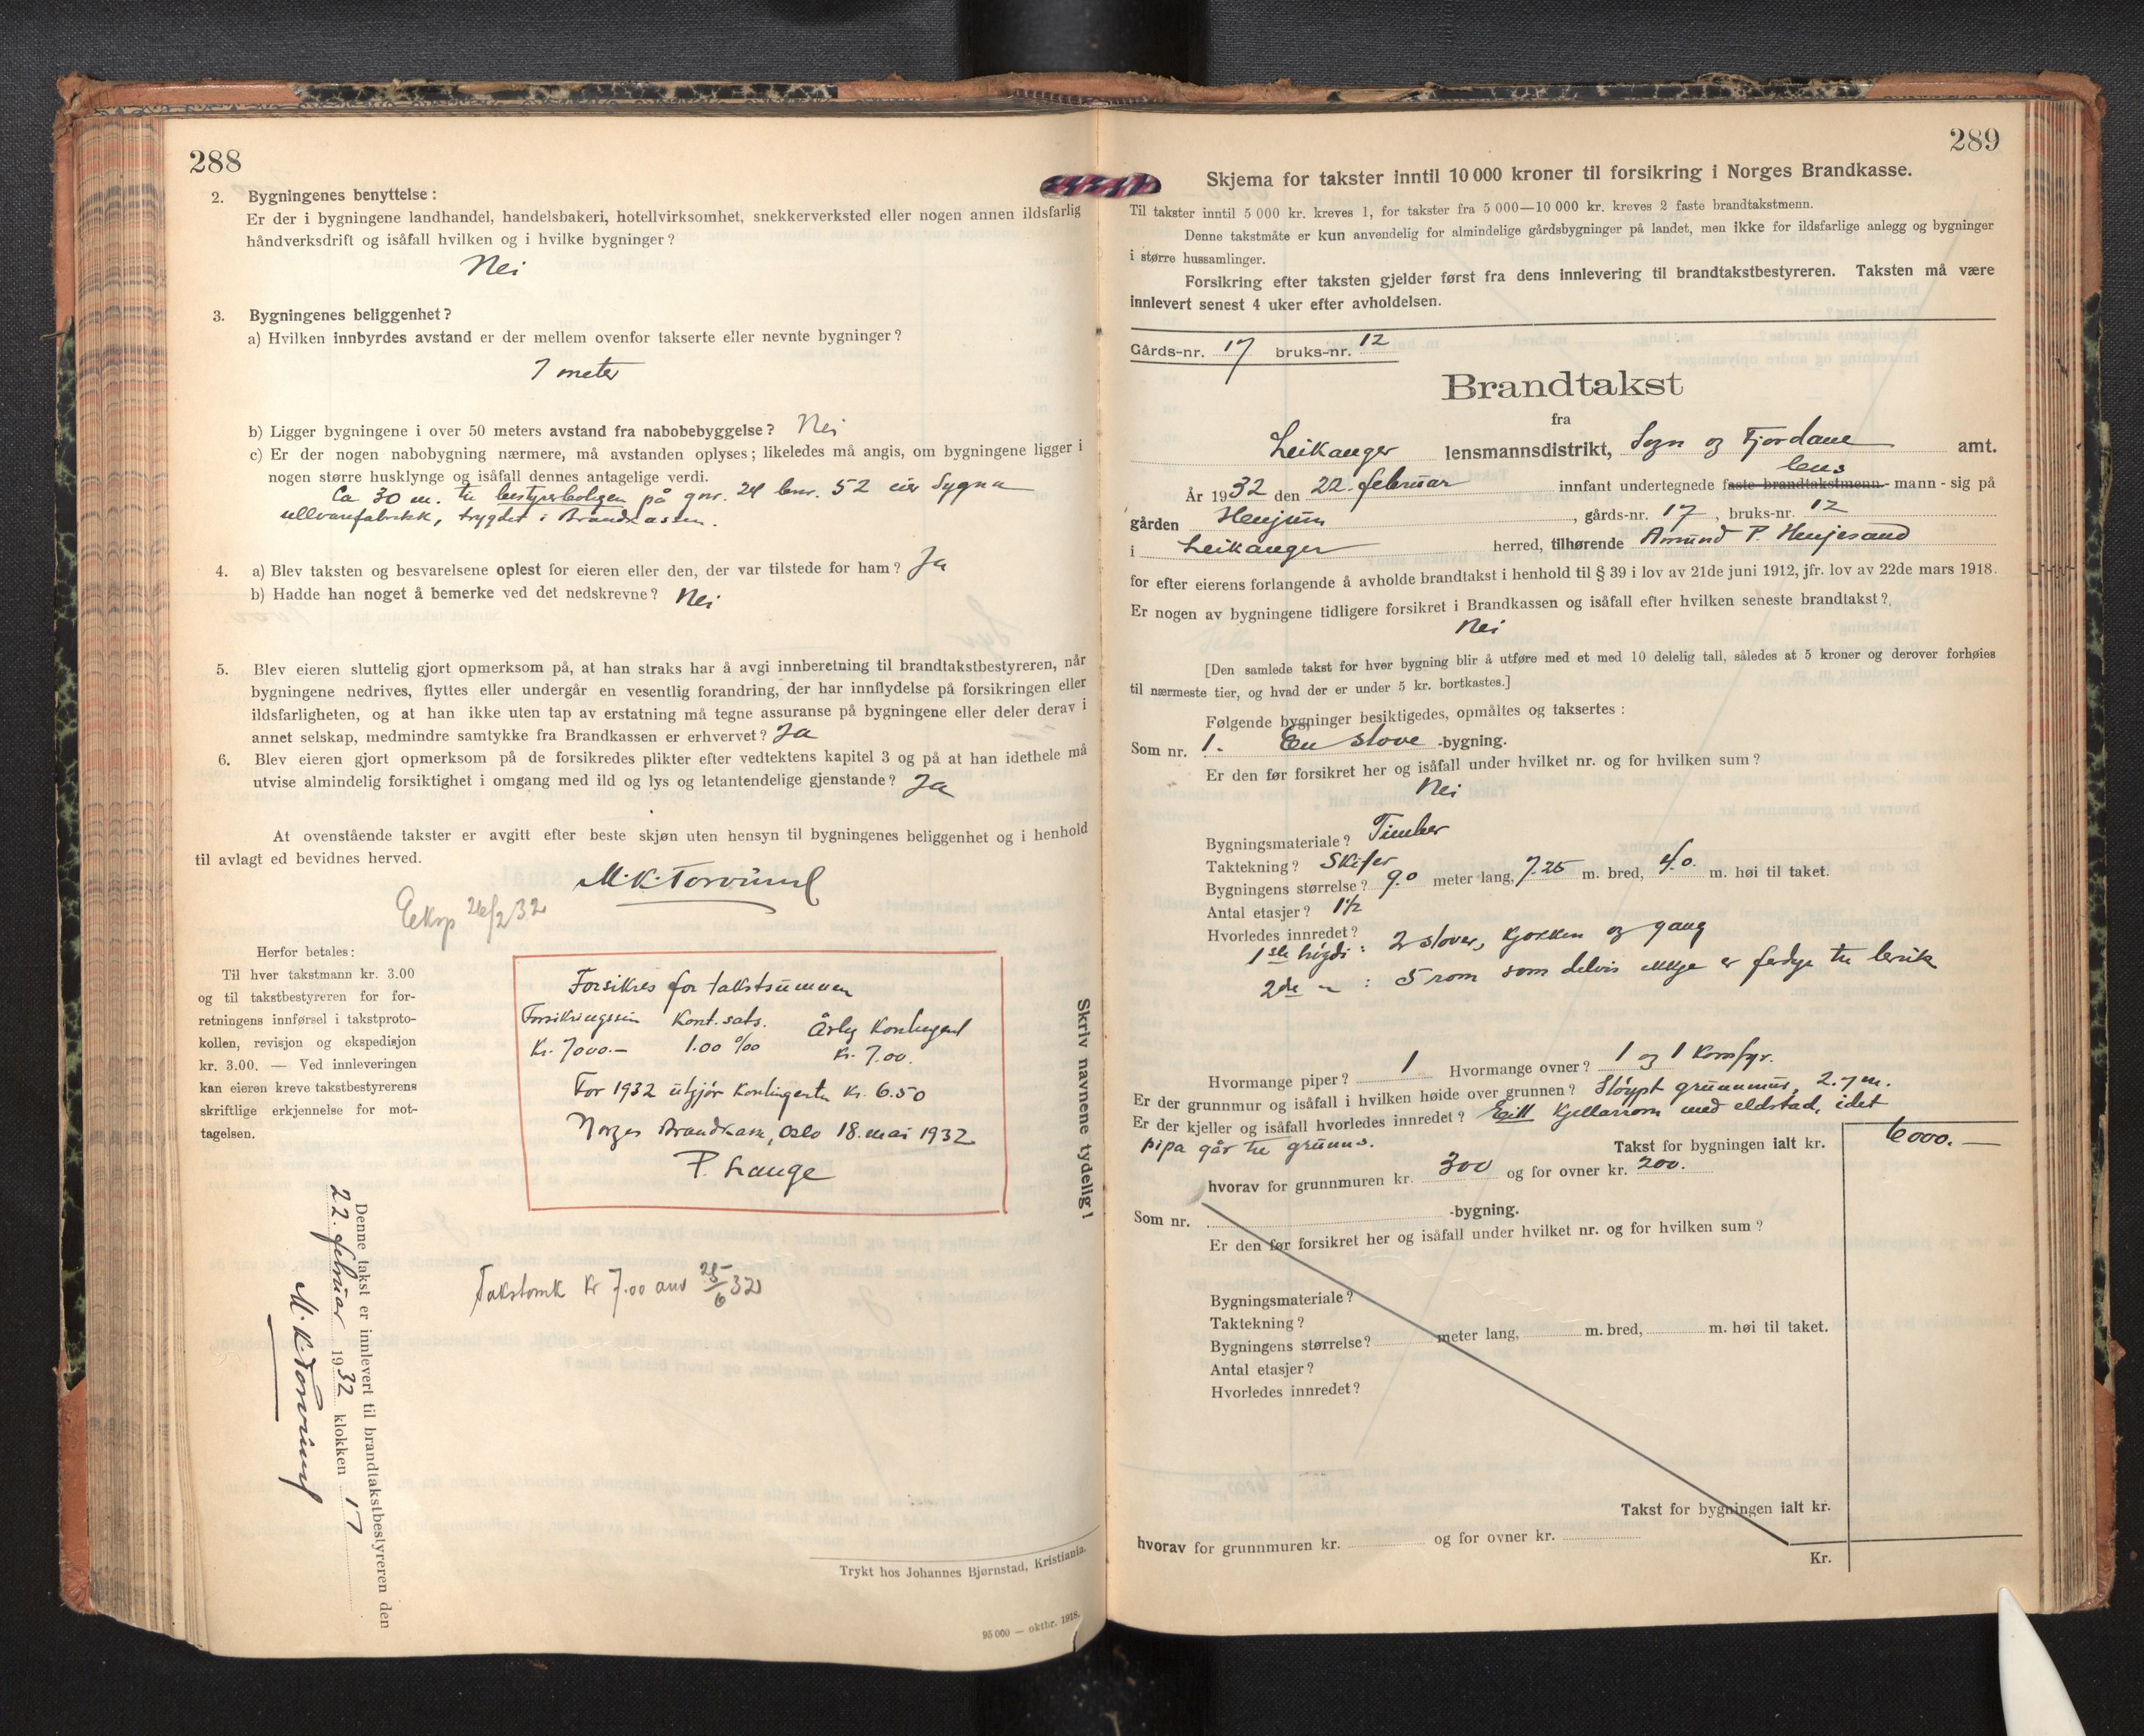 288
2. Bygningenes benyttelse:
Er der i bygningene landhandel, handelsbakeri, hotellvirksomhet, snekkerverksted eller nogen annen ildsfarlig
håndverksdrift og isåfall hvilken og i hvilke bygninger?
Nei
3. Bygningenes beliggenhet?
a) Hvilken innbyrdes avstand er der mellem ovenfor takserte eller nevnte bygninger?
7 meter
b) Ligger bygningene i over 50 meters avstand fra nabobebyggelse? Nei
c) Er der nogen nabobygning nærmere, må avstanden oplyses; likeledes må angis, om bygningene ligger i
nogen større husklynge og isåfall dennes antagelige verdi.
Ca 30 m. til bestyrerboligen på gnr. 24 bnr. 52 eier Sygna
ullvarefabrikk, trygdet i Brandkassen.
4. a) Blev taksten og besvarelsene oplest for eieren eller den, der var tilstede for ham? Ja
b) Hadde han noget å bemerke ved det nedskrevne? Nei
5. Blev eieren sluttelig gjort opmerksom på, at han straks har å avgi innberetning til brandtakstbestyreren, når
bygningene nedrives, flyttes eller undergår en vesentlig forandring, der har innflydelse på forsikringen eller
ildsfarligheten, og at han ikke uten tap av erstatning må tegne assuranse på bygningene eller deler derav i
annet selskap, medmindre samtykke fra Brandkassen er erhvervet? Ja
6. Blev eieren gjort opmerksom på de forsikredes plikter efter vedtektens kapitel 3 og på at han idethele må
utvise almindelig forsiktighet i omgang med ild og lys og letantendelige gjenstande? Ja
At ovenstående takster er avgitt efter beste skjøn uten hensyn til bygningenes beliggenhet og i henhold
til avlagt ed bevidnes herved.
M. K. Torvund
Eksp 26/2 32
Herfor betales:
Til hver takstmann kr. 3.00
og til takstbestyreren for for-
retningens innførsel i takstproto-
kollen, revisjon og ekspedisjon
kr. 3.00. — Ved innleveringen
kan eieren kreve takstbestyrerens
skriftlige erkjennelse for mot-
tagelsen.
Forsikres for takstsummen
Forsikringssum Kont. sats. Årlig Kontingent
Kr. 7000.— 1.00 ‰ Kr. 7.00.
For 1932 utgjør kontingenten Kr. 6.50
Norges Brandkasse, Oslo 18. mai 1932
P. Lange
Skriv navnene tydelig!
Takstomk Kr 7.00 anv 25/6 32
Denne takst er innlevert til brandtakstbestyreren den
22. februar 1932 klokken 17
M. K. Torvund
Trykt hos Johannes Bjørnstad, Kristiania.
95 000 — oktbr. 1918.
289
Skjema for takster inntil 10 000 kroner til forsikring i Norges Brandkasse.
Til takster inntil 5 000 kr. kreves 1, for takster fra 5 000—10 000 kr. kreves 2 faste brandtakstmenn.
Denne takstmåte er kun anvendelig for almindelige gårdsbygninger på landet, men ikke for ildsfarlige anlegg og bygninger
i større hussamlinger.
Forsikring efter taksten gjelder først fra dens innlevering til brandtakstbestyreren. Taksten må være
innlevert senest 4 uker efter avholdelsen.
Gårds-nr. 17 bruks-nr. 12
Brandtakst
fra
Leikanger lensmannsdistrikt, Sogn og Fjordane amt.
År 1932 den 22. februar innfant undertegnede faste brandtakstmenn lens-mann - sig på
gården Henjum, gårds-nr. 17, bruks-nr. 12
i Leikanger herred, tilhørende Amund P. Henjesand
for efter eierens forlangende å avholde brandtakst i henhold til § 39 i lov av 21de juni 1912, jfr. lov av 22de mars 1918.
Er nogen av bygningene tidligere forsikret i Brandkassen og isåfall efter hvilken seneste brandtakst?
Nei
[Den samlede takst for hver bygning blir å utføre med et med 10 delelig tall, således at 5 kroner og derover forhøies
til nærmeste tier, og hvad der er under 5 kr. bortkastes.]
Følgende bygninger besiktigedes, opmåltes og taksertes:
Som nr. 1. En stove -bygning.
Er den før forsikret her og isåfall under hvilket nr. og for hvilken sum?
Nei
Bygningsmateriale? Timber
Taktekning? Skifer
Bygningens størrelse? 9.0 meter lang, 7.25 m. bred, 4.0. m. høi til taket.
Antal etasjer? 1½
Hvorledes innredet?
1ste høgdi: 2 stover, kjøkken og gang
2de " : 5 rom som delvis ikkje er ferdge til bruk
Hvormange piper? 1 Hvormange ovner? 1 og 1 komfyr.
Er der grunnmur og isåfall i hvilken høide over grunnen? Støypt grunnmur, 2.7 m.
Er der kjeller og isåfall hvorledes innredet? Eitt kjellarrom med eldstad, idet
pipa går til grunns.
Takst for bygningen ialt kr. 6000.—
hvorav for grunnmuren kr. 300 og for ovner kr. 200.
Som nr. -bygning.
Er den før forsikret her og isåfall under hvilket nr. og for hvilken sum?
Bygningsmateriale?
Taktekning?
Bygningens størrelse? meter lang, m. bred, m. høi til taket.
Antal etasjer?
Hvorledes innredet?
Takst for bygningen ialt kr.
hvorav for grunnmuren kr. og for ovner kr.
Kr.